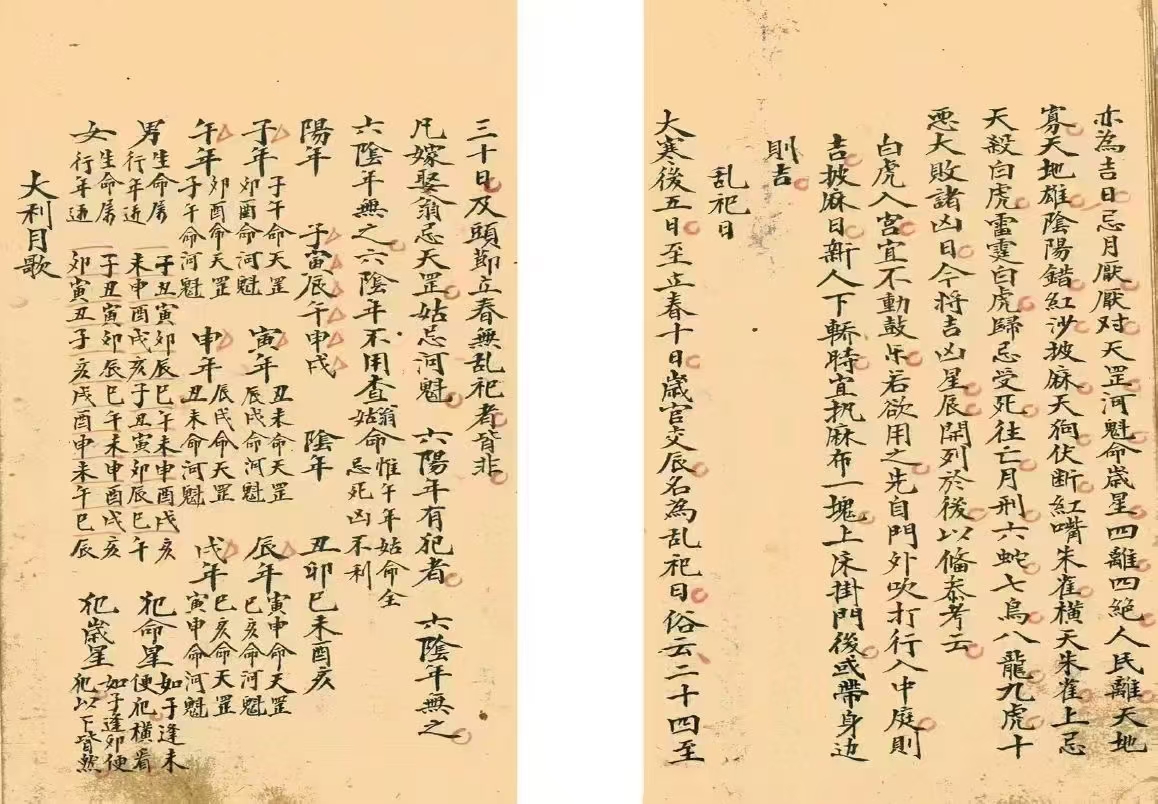 亦為吉日忌月厭厭对天罡河魁命歲星四離四絕人民離天地
寡天地雄陰陽錯紅沙披麻天狗伏断紅嘴朱雀橫天朱雀上忌
天殺白虎雷霆白虎歸忌受死往亡月刑六蛇七鳥八龍九虎十
悪大敗諸凶日今將吉凶星辰開列於後以俻叅考云
白虎入宮宜不動鼓乐若欲用之先自門外吹打行入中庭則
吉披麻日新人下轎時宜执麻布一塊上床掛門後或帶身边
則吉
乱祀日
大寒後五日至立春十日歲官交辰名為乱祀日俗云二十四至
三十日及頭節立春無乱祀者皆非
凡嫁娶翁忌天罡姑忌河魁 六陽年有犯者 六陰年無之
六陰年無之六陰年不用查翁姑命惟午年姑命全忌死凶不利
陽年 子寅辰午申戌 陰年 丑卯巳未酉亥
子年 子午命天罡 卯酉命河魁 寅年 丑未命天罡 辰戌命河魁 辰年 寅申命天罡 巳亥命河魁
午年 卯酉命天罡 子午命河魁 申年 辰戌命天罡 丑未命河魁 戌年 巳亥命天罡 寅申命河魁
男 生命属 行年逢 子丑寅卯辰巳午未申酉戌亥 未申酉戌亥子丑寅卯辰巳午 犯命星 如子逢未便犯橫看
女 生命属 行年逢 子丑寅卯辰巳午未申酉戌亥 卯寅丑子亥戌酉申未午巳辰 犯歲星 如子逢卯便犯以下皆然
大利月歌